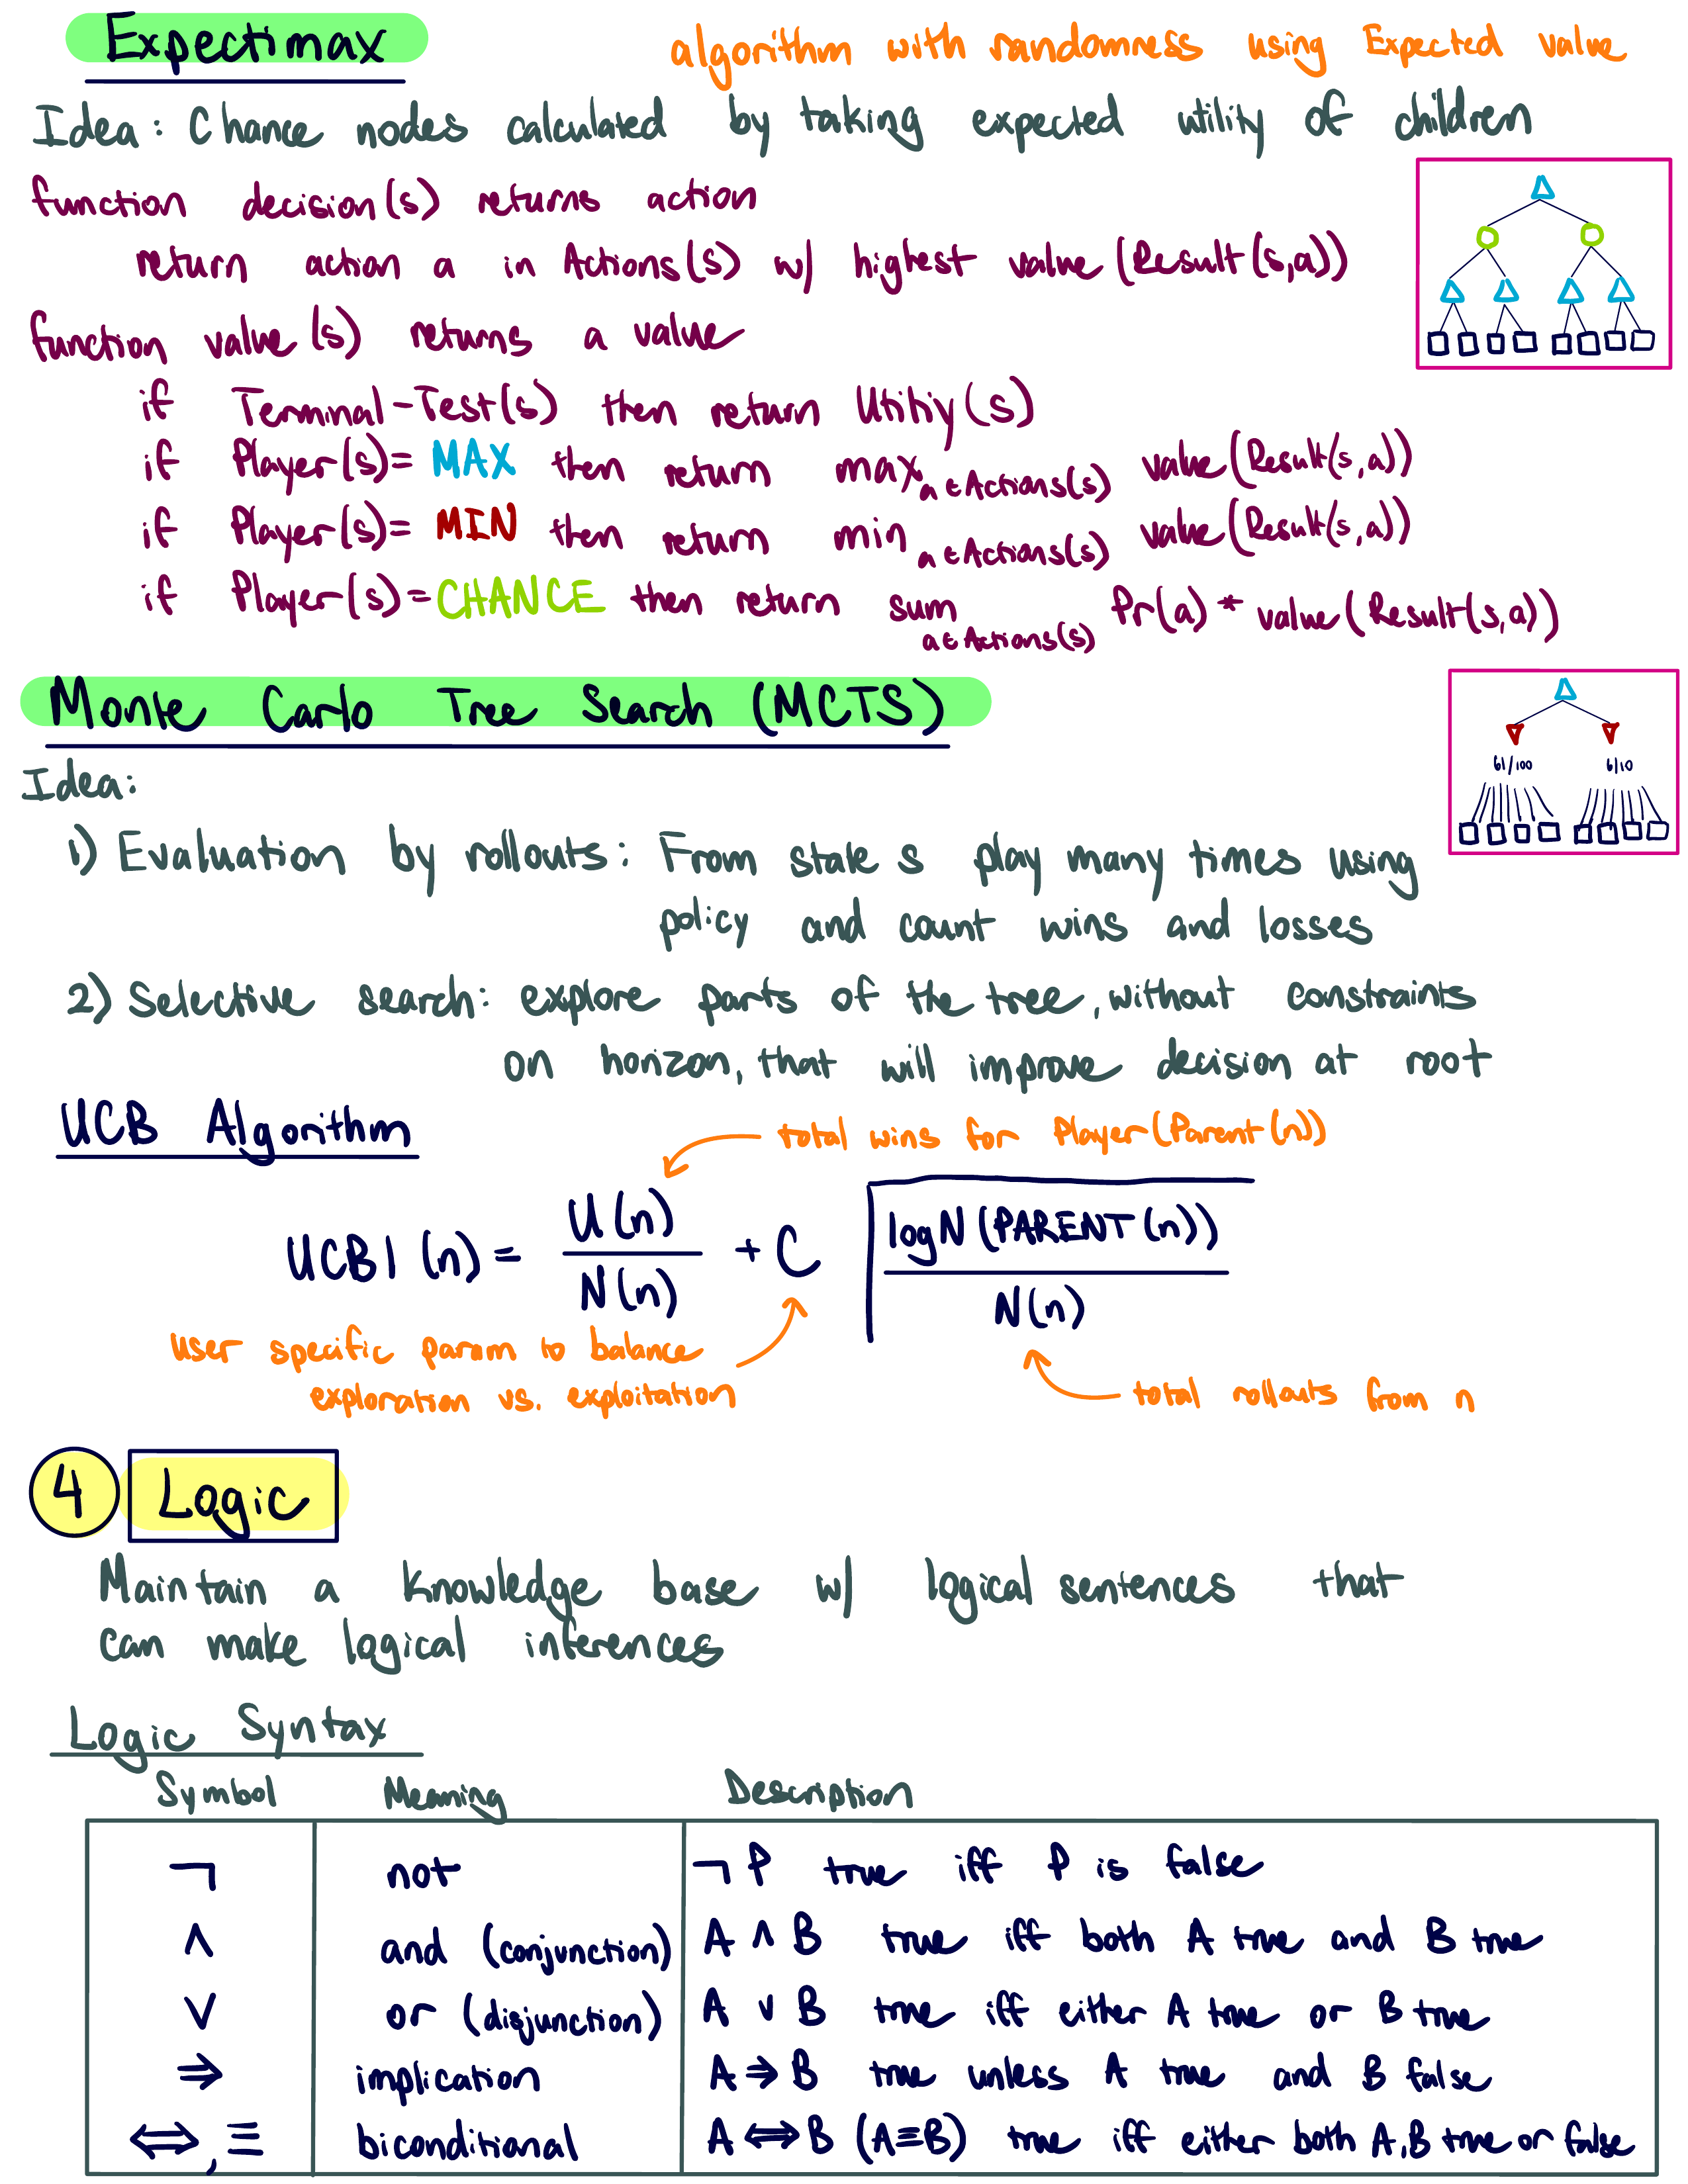 Expectimax
algorithm with randomness using Expected value
Idea: Chance nodes calculated by taking expected utility of children
function decision(s) returns action
return action a in Actions(s) w/ highest value (Result(s,a))
function value(s) returns a value
if Terminal-Test(s) then return Utitiy(s)
if Player(s)= MAX then return max a∈Actions(s) value(Result(s,a))
if Player(s)= MIN then return min a∈Actions(s) value(Result(s,a))
if Player(s)= CHANCE then return sum a∈Actions(s) Pr(a) * value(Result(s,a))
Monte Carlo Tree Search (MCTS)
61/100 6/10
Idea:
1) Evaluation by rollouts: From state s play many times using
policy and count wins and losses
2) Selective search: explore parts of the tree, without constraints
on horizon, that will improve decision at root
UCB Algorithm
total wins for Player(Parent(n))
UCB1 (n) = U(n) / N(n) + C √ log N (PARENT(n)) / N(n)
user specific param to balance
exploration vs. exploitation
total rollouts from n
4 Logic
Maintain a knowledge base w/ logical sentences that
can make logical inferences
Logic Syntax
Symbol Meaning Description
¬ not ¬ P true iff P is false
∧ and (conjunction) A ∧ B true iff both A true and B true
∨ or (disjunction) A ∨ B true iff either A true or B true
⇒ implication A ⇒ B true unless A true and B false
⇔, ≡ biconditional A ⇔ B (A≡B) true iff either both A,B true or false